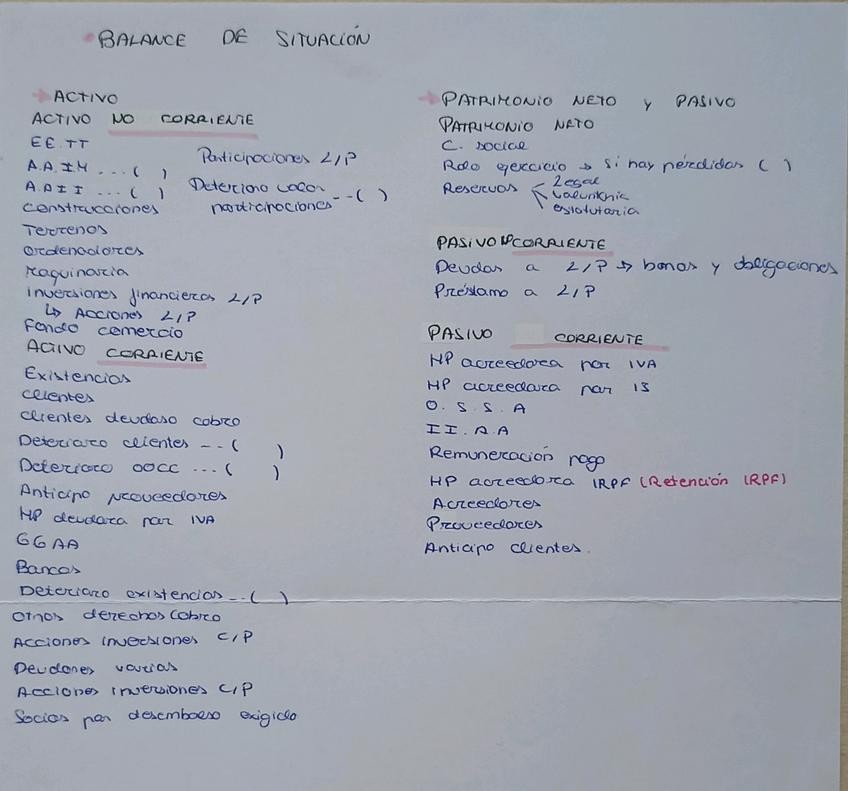 BALANCE DE SITUACIÓN
→ ACTIVO
ACTIVO NO CORRIENTE
EE.TT
A.A.I.M ...( )
A.A.I.I ...( )
Construcciones
Terrenos
Ordenadores
Maquinaria
Inversiones financieras L/P
↳ Acciones L/P
Fondo comercio
Participaciones L/P
Deterioro valor
participaciones --( )
ACTIVO CORRIENTE
Existencias
Clientes
Clientes deudoso cobro
Deterioro clientes --( )
Deterioro OOCC ...( )
Anticipo proveedores
HP deudora por IVA
GGAA
Bancos
Deterioro existencias --( )
Otros derechos cobro
Acciones inversiones C/P
Deudores varios
Acciones inversiones C/P
Socios por desembolso exigido
→ PATRIMONIO NETO y PASIVO
PATRIMONIO NETO
C. social
Rdo ejercicio → si hay pérdidas ( )
Reservas Legal
voluntaria
estatutaria
PASIVO NO CORRIENTE
Deudas a L/P → bonos y obligaciones
Préstamo a L/P
PASIVO CORRIENTE
HP acreedora por IVA
HP acreedora por IS
O.S.S.A
II.A.A
Remuneración pago
HP acreedora IRPF (Retención IRPF)
Acreedores
Proveedores
Anticipo clientes.